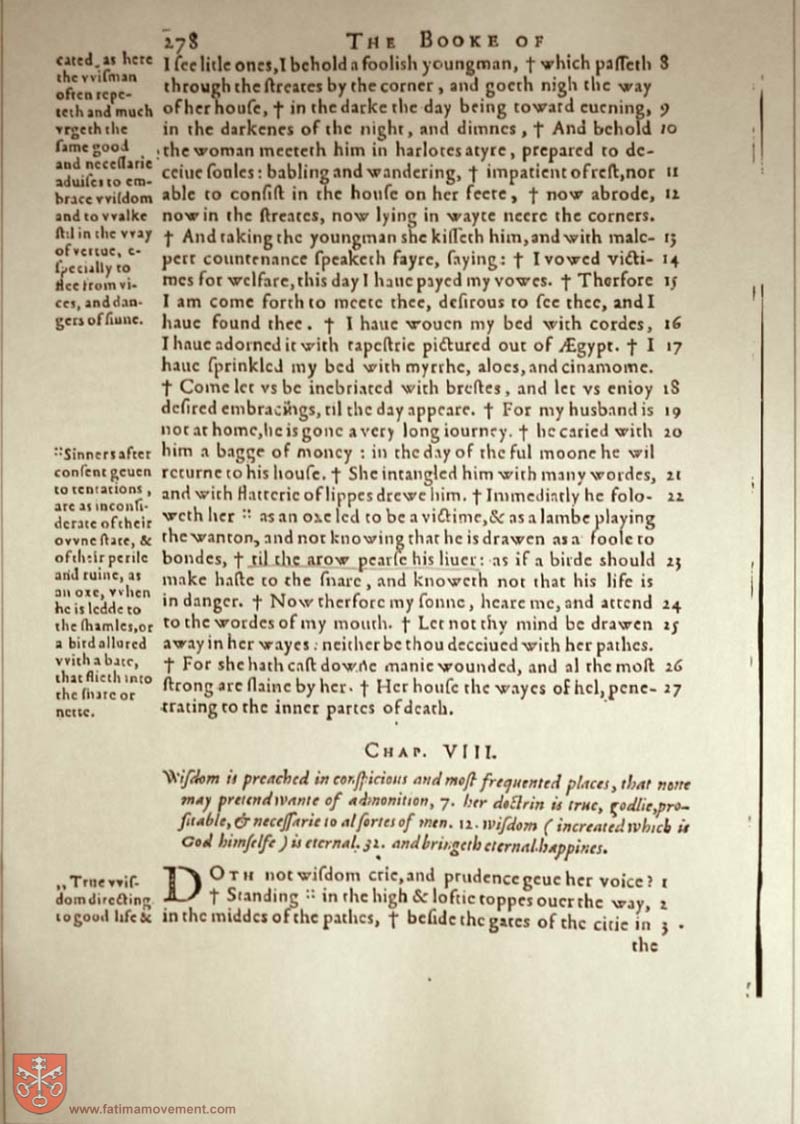 278
THE BOOKE OF
cated, as here
the vviſman
often repe-
teth and much
vrgeth the
ſame good
and neceſſarie
aduiſes to em-
brace vviſdom
and to vvalke
ſtil in the vvay
of vertue, e-
ſpecially to
flee from vi-
ces, and dan-
gers of ſinne.
I ſee litle ones, I behold a fooliſh youngman, † which paſſeth 8
through the ſtreates by the corner, and goeth nigh the way
of her houſe, † in the darke the day being toward euening, 9
in the darkenes of the night, and dimnes, † And behold 10
the woman meeteth him in harlotes atyre, prepared to de-
ceiue ſoules: babling and wandering, † impatient of reſt, nor 11
able to conſiſt in the houſe on her feete, † now abrode, 12
now in the ſtreates, now lying in wayte neere the corners.
† And taking the youngman she kiſſeth him, and with male- 13
pert countenance ſpeaketh fayre, ſaying: † I vowed victi- 14
mes for welfare, this day I haue payed my vowes. † Therfore 15
I am come forth to meete thee, deſirous to ſee thee, and I
haue found thee. † I haue wouen my bed with cordes, 16
I haue adorned it with tapeſtrie pictured out of Ægypt. † I 17
haue ſprinkled my bed with myrrhe, aloes, and cinamome.
† Come let vs be inebriated with breſtes, and let vs enioy 18
deſired embracings, til the day appeare. † For my husband is 19
not at home, he is gone a very long iourney. † he caried with 20
him a bagge of money : in the day of the ful moone he wil
returne to his houſe. † She intangled him with many wordes, 21
and with flatterie of lippes drewe him. † Immediatly he folo- 22
weth her :: as an oxe led to be a victime, & as a lambe playing
the wanton, and not knowing that he is drawen as a foole to
bondes, † til the arow pearſe his liuer: as if a birde should 23
make haſte to the ſnare, and knoweth not that his life is
in danger. † Now therfore my ſonne, heare me, and attend 24
to the wordes of my mouth. † Let not thy mind be drawen 25
away in her wayes: neither be thou deceiued with her pathes.
† For she hath caſt downe manie wounded, and al the moſt 26
ſtrong are ſlaine by her. † Her houſe the wayes of hel, pene- 27
trating to the inner partes of death.
::Sinners after
conſent geuen
to tentations,
are as inconſi-
derate of their
ovvne ſtate, &
of their perile
and ruine, as
an oxe, vvhen
he is ledde to
the ſhamles, or
a bird allured
vvith a bate,
that flieth into
the ſnare or
nette.
CHAP. VIII.
Wiſdom is preached in conſpicious and moſt frequented places, that none
may pretend wante of admonition, 7. her doctrin is true, godlie, pro-
fitable, & neceſſarie to al ſortes of men. 12. Wiſdom (increated which is
God himſelfe) is eternal. 32. and bringeth eternal happines.
,,True vviſ-
dom directing
to good life &
DOTH not wiſdom crie, and prudence geue her voice? 1
† Standing :: in the high & loftie toppes ouer the way, 2
in the middes of the pathes, † beſide the gates of the citie in 3
the
www.fatimamovement.com